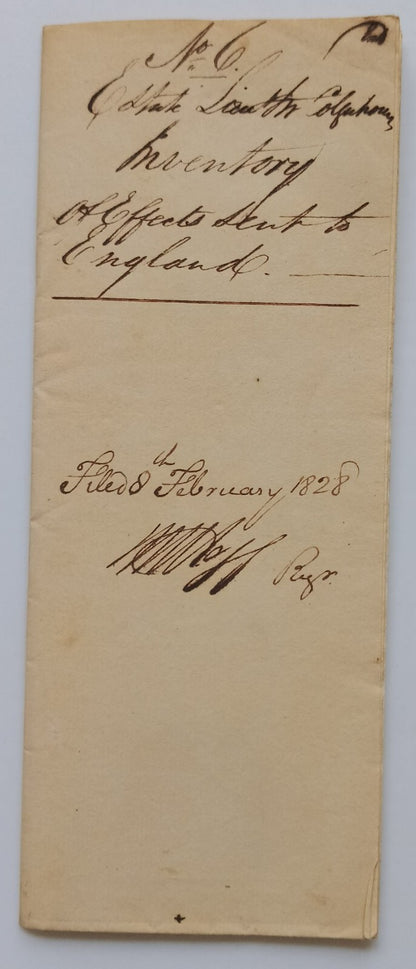 No. 6.
Estate Lieut Colquhoun
Inventory
Of Effects sent to
England.
Filed 8th February 1828
Regr.